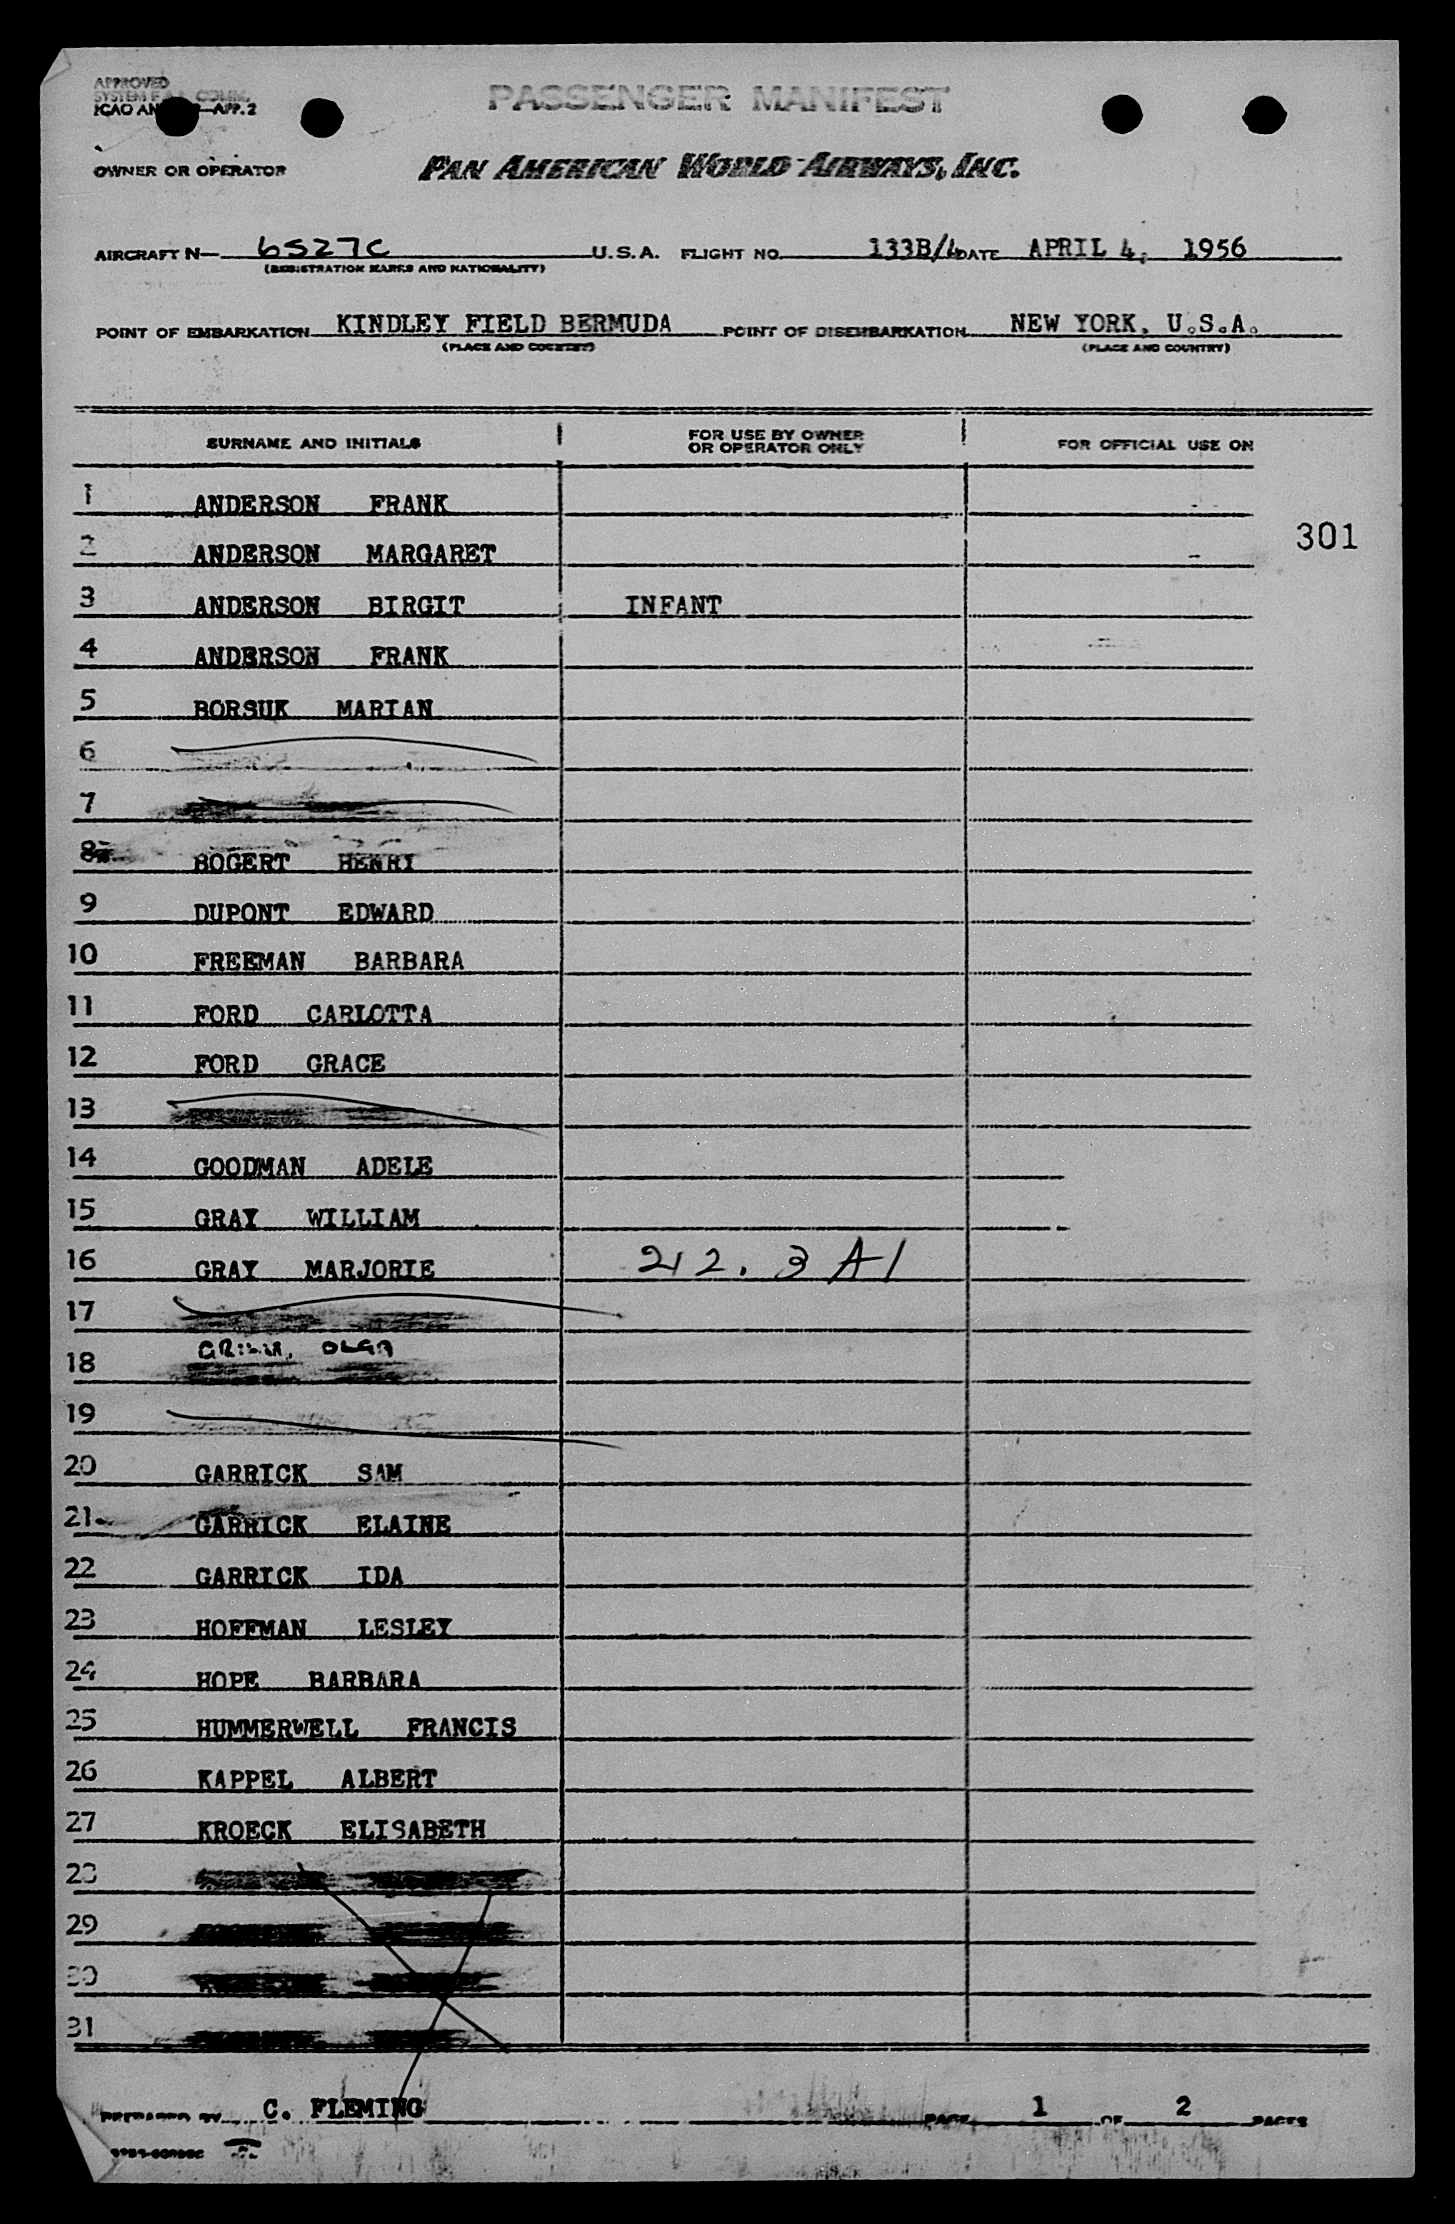 APPROVED
PASSENGER MANIFEST
ICAO APP. 2
OWNER OR OPERATOR PAN AMERICAN WORLD AIRWAYS, INC.
AIRCRAFT N— 6527C U.S.A. FLIGHT NO. 133B/4 DATE APRIL 4, 1956
(REGISTRATION MARKS AND NATIONALITY)
POINT OF EMBARKATION KINDLEY FIELD BERMUDA POINT OF DISEMBARKATION NEW YORK, U.S.A.
(PLACE AND COUNTRY) (PLACE AND COUNTRY)
SURNAME AND INITIALS FOR USE BY OWNER OR OPERATOR ONLY FOR OFFICIAL USE ON
1 ANDERSON FRANK
301
2 ANDERSON MARGARET
3 ANDERSON BIRGIT INFANT
4 ANDERSON FRANK
5 BORSUK MARIAN
6
7
8 BOGERT HENRI
9 DUPONT EDWARD
10 FREEMAN BARBARA
11 FORD CARLOTTA
12 FORD GRACE
13
14 GOODMAN ADELE
15 GRAY WILLIAM
16 GRAY MARJORIE 212.3 A1
17
18 OLGA
19
20 GARRICK SAM
21 GARRICK ELAINE
22 GARRICK IDA
23 HOFFMAN LESLEY
24 HOPE BARBARA
25 HUMMERWELL FRANCIS
26 KAPPEL ALBERT
27 KROECK ELISABETH
28
29
30
31
PREPARED BY C. FLEMING PAGE 1 OF 2 PAGES